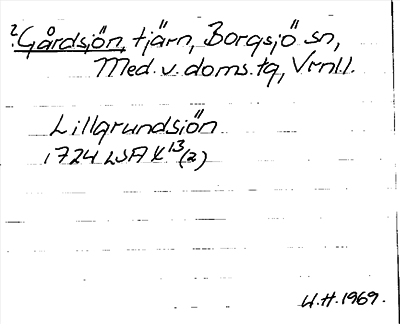 ?Gårdsjön, tjärn, Borgsjö sn,
Med. v. doms. tg, Vrnll.
Lillgrundsjön
1724 LSA K 13 (2)
U.H. 1969.